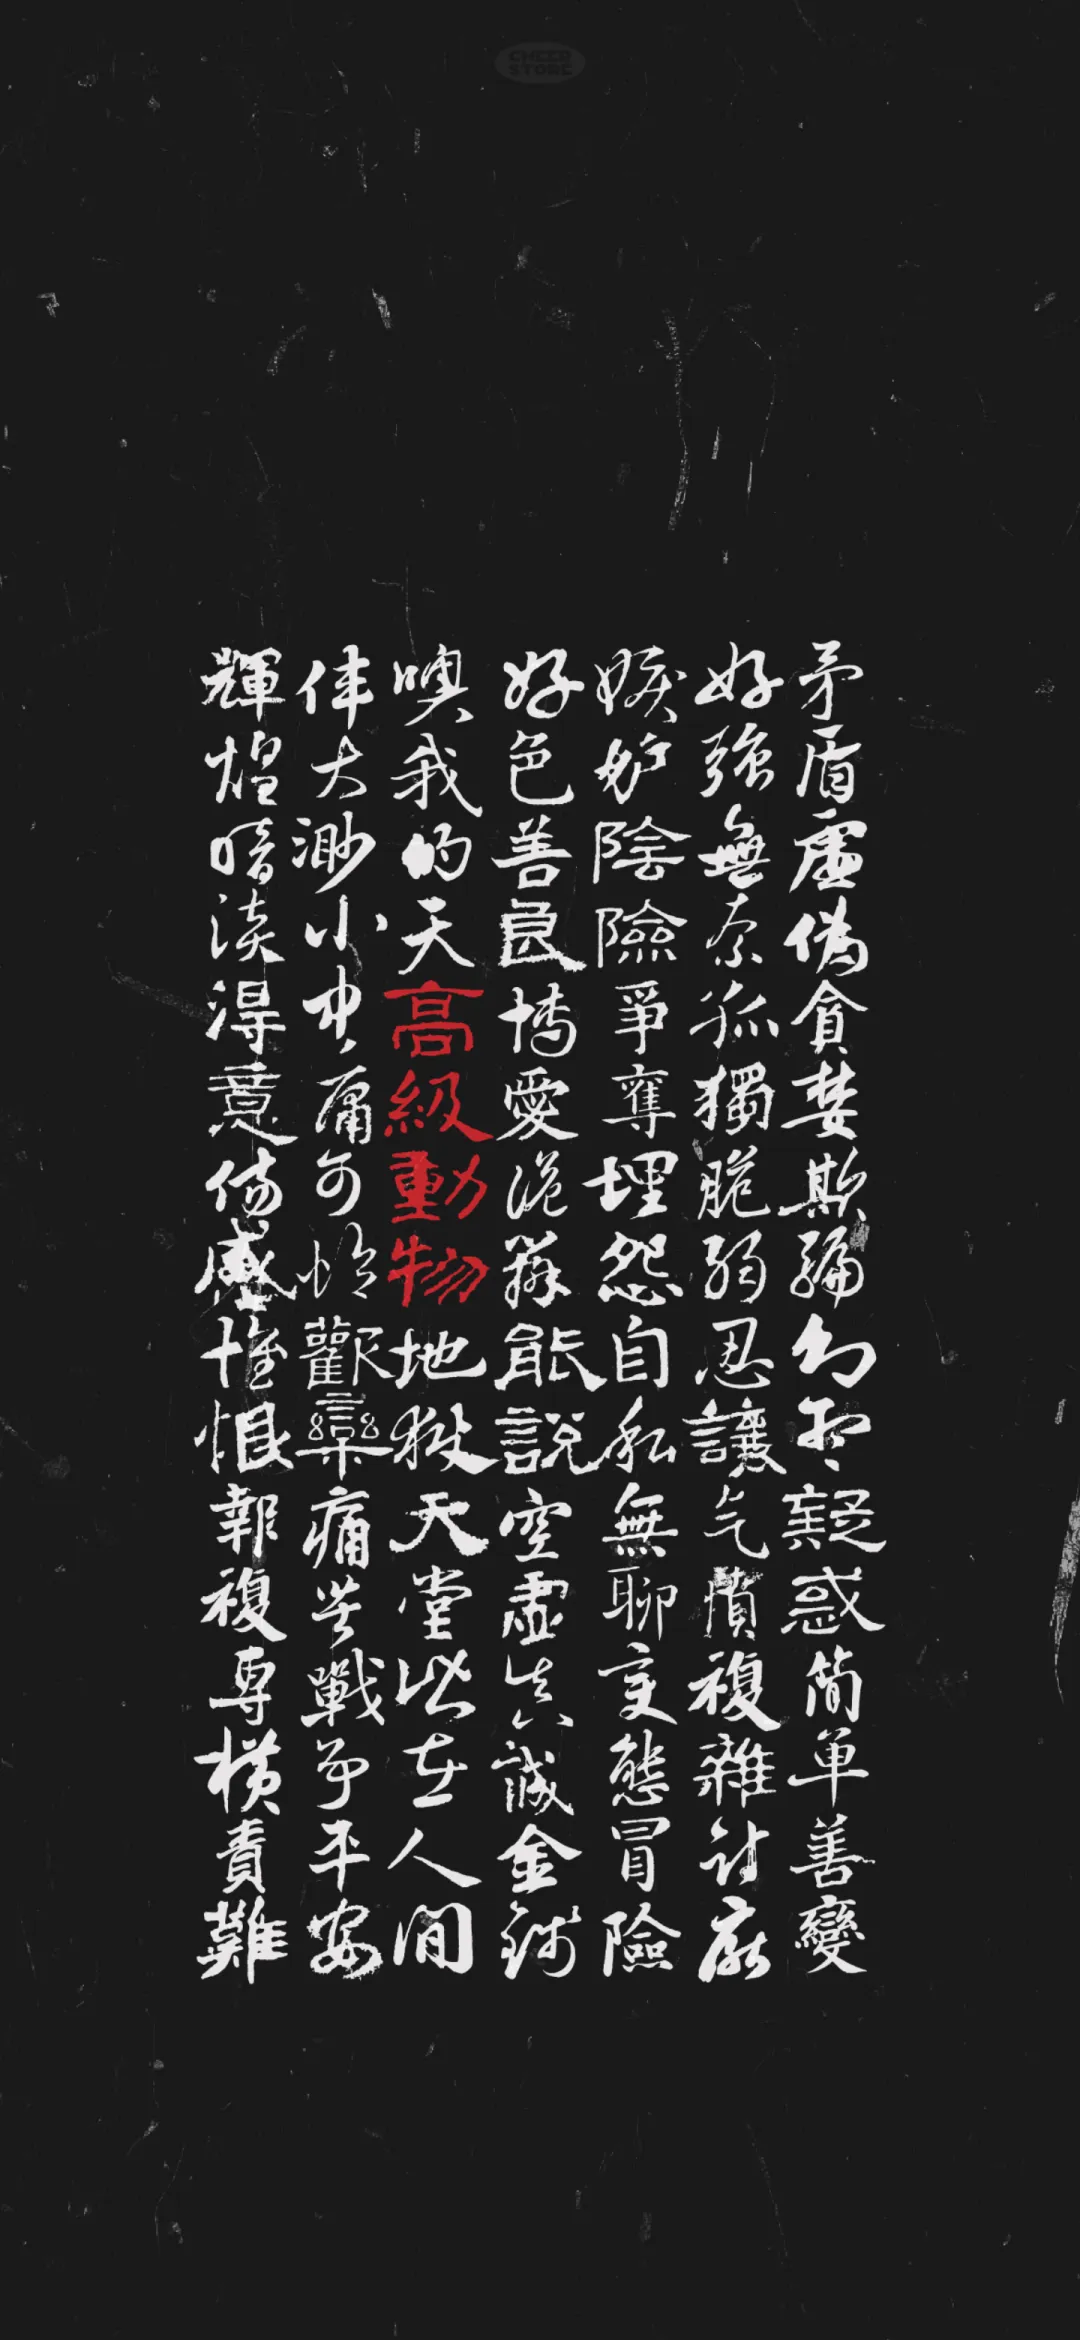 CHEER
STORE
矛盾虛偽貪婪欺騙幻想疑惑簡單善變
好強無奈孤獨脆弱忍讓气憤複雜討厭
嫉妒陰險爭奪埋怨自私無聊変態冒險
好色善良博愛詭辯能說空虛真誠金錢
噢我的天高級動物地獄天堂皆在人間
偉大渺小中庸可憐歡樂痛苦戰爭平安
輝煌暗淡得意傷感懷恨報複專橫責難